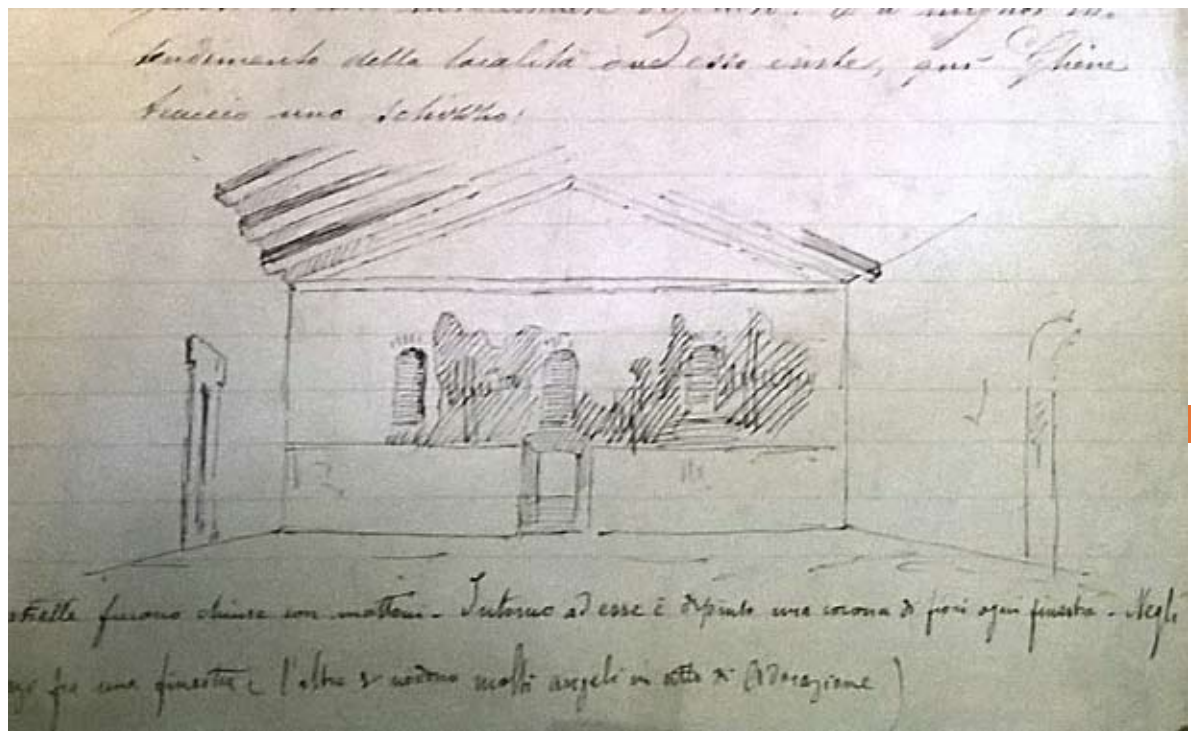 miglior in.
tendimento della località ove esso esiste, qui Gliene
traccio uno schizzo:
furono chiuse con mattoni. Intorno ad esse è dipinto una corona di fiori ogni finestra. Negli
fra una finestra e l'altra si vedono molti angeli in atto di Adorazione)